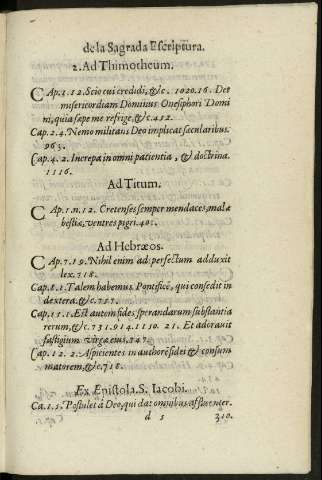 de la Sagrada Escriptura.
2. Ad Thimotheum.
CAp.1.12. Scio cui credidi, &c. 1020.16. Det
misericordiam Dominus Onesiphori Domi
ni, quia sæpe me refrige, &c. 412.
Cap. 2.4. Nemo militans Deo implicat sæcularibus.
963.
Cap. 4.2. Increpa in omni patientia, & doctrina.
1116.
Ad Titum.
CAp.1.n.12. Cretenses semper mendaces, malæ
bestiæ, ventres pigri. 403.
Ad Hebræos.
CAp.7.19. Nihil enim ad perfectum adduxit
lex. 718.
Cap. 8.1. Talem habemus Pontificē, qui consedit in
dextera, &c. 757.
Cap. 11.1. Est autem fides sperandarum substantia
rerum, &c. 731.914.1110. 21. Et adorauit
fastigium virgæ eius, 547.
Cap. 12. 2. Aspicientes in authorē fidei, & consum
matorem, &c. 718.
Ex Epistola. S. Iacobi.
Ca. 1.5. Postulet à Deo, qui dat omnibus affluenter.
d 5 310.